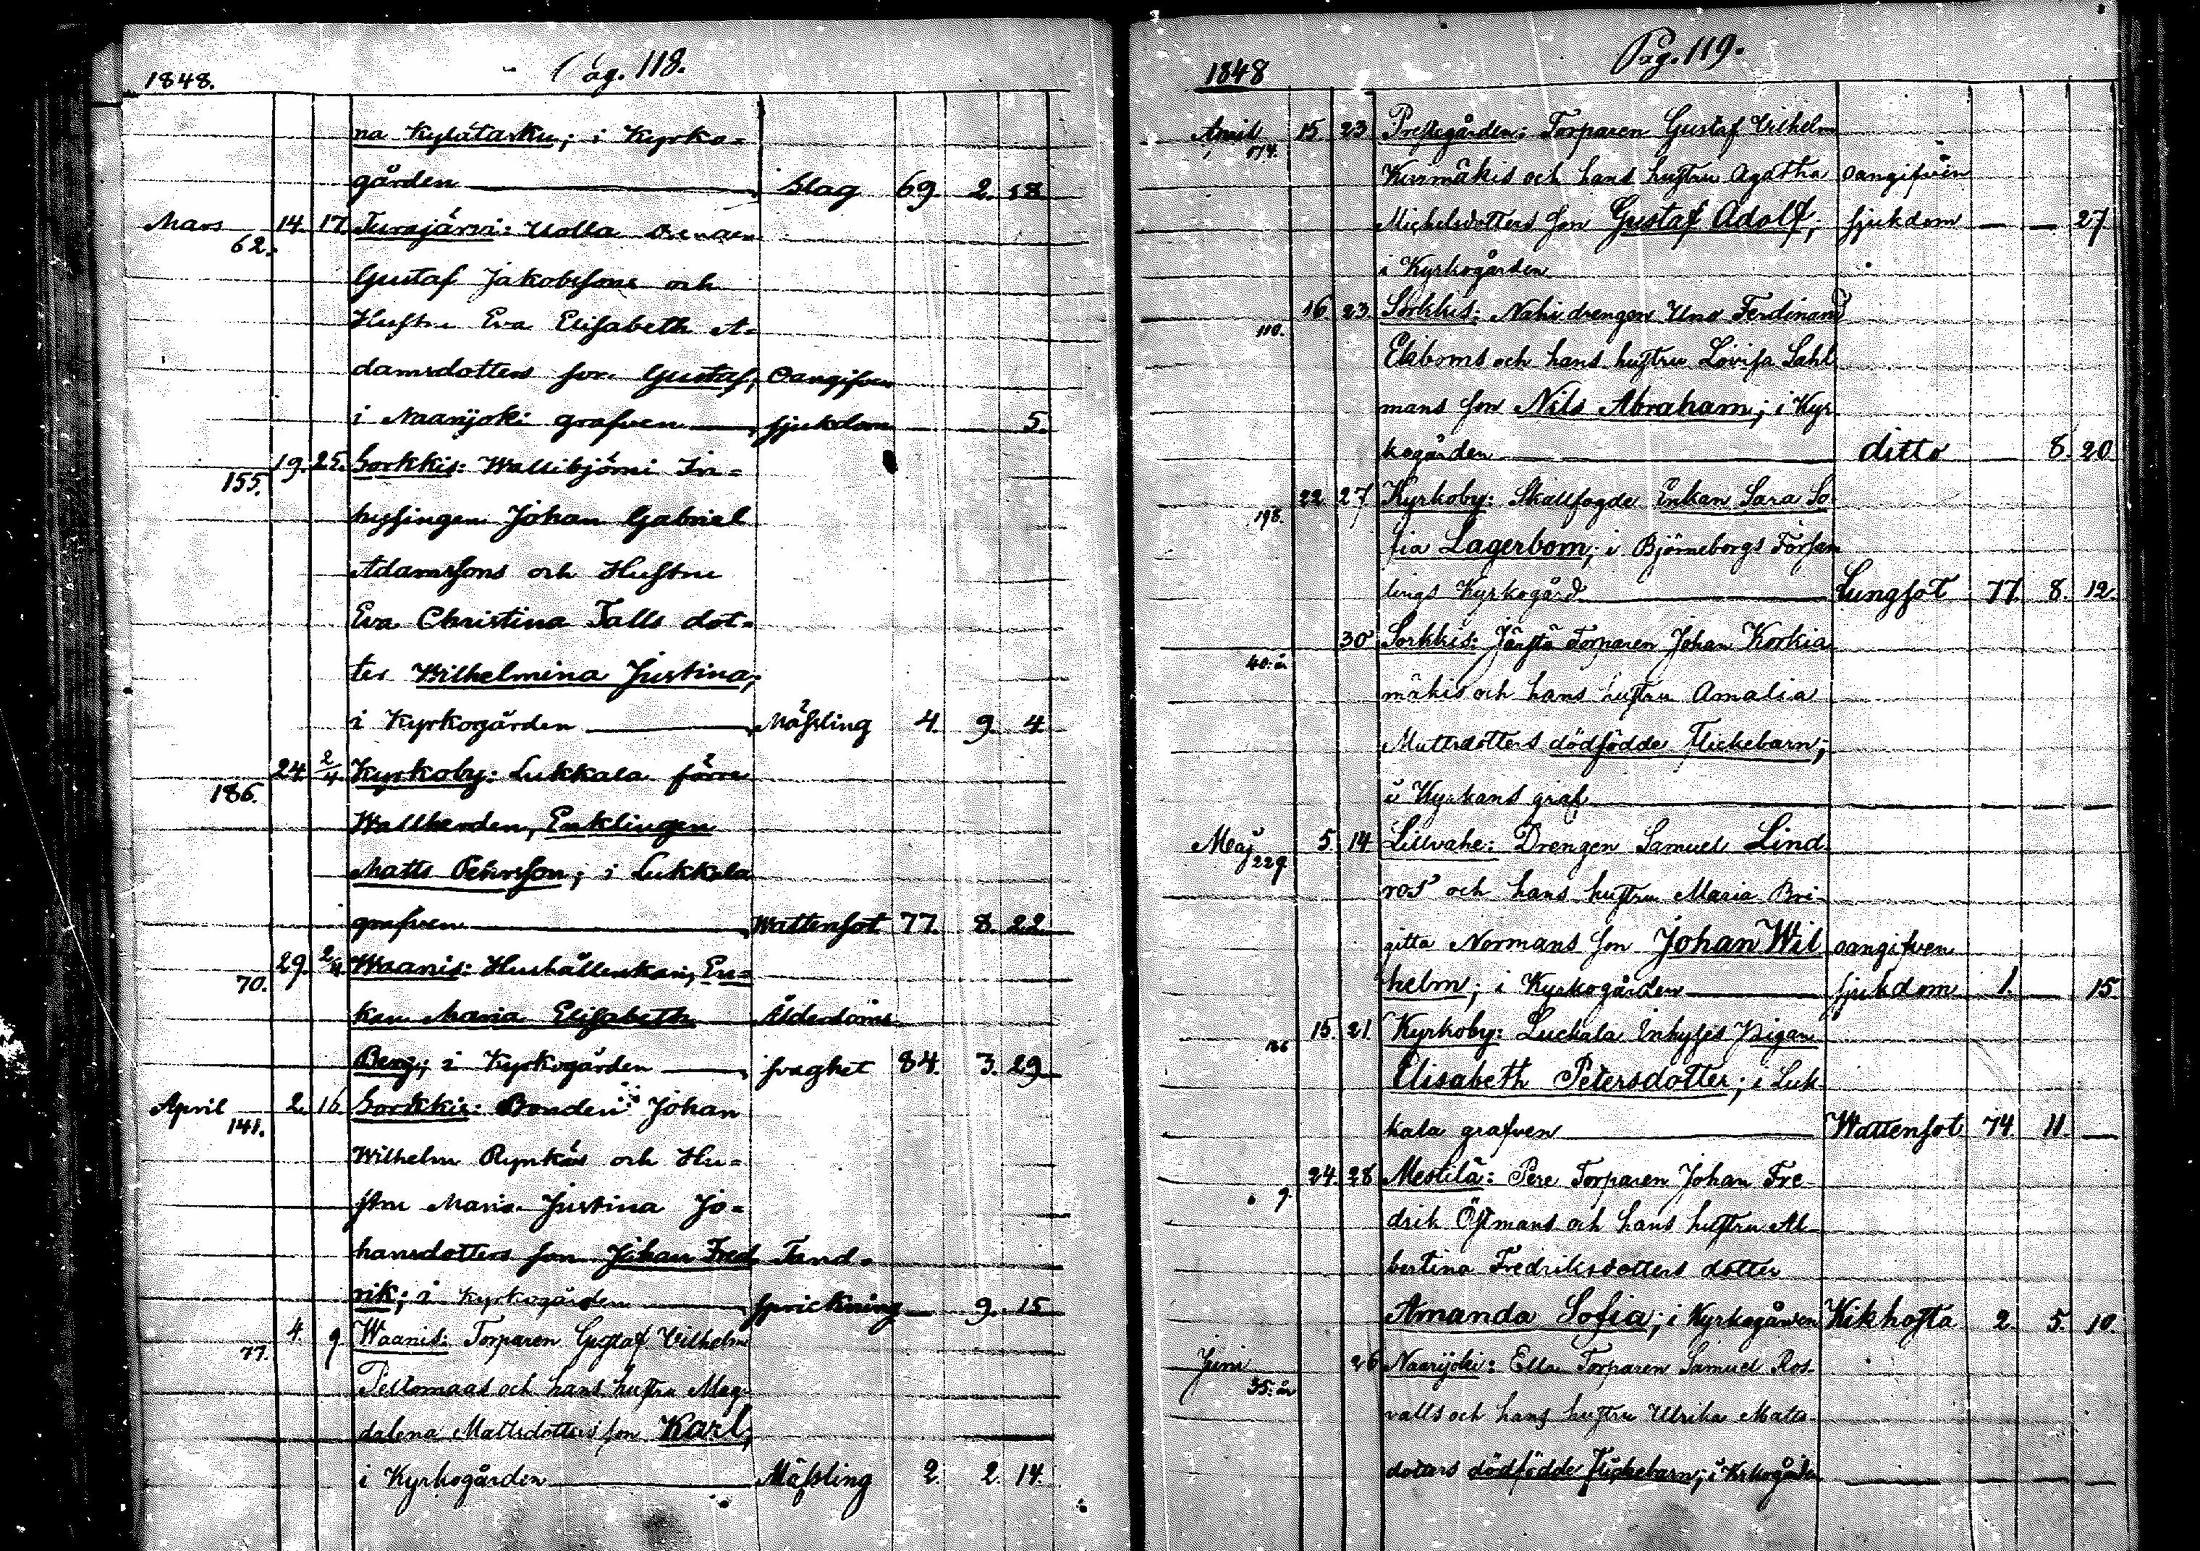 1848. Pag. 118.
na Kylätasku; i Kyrko-
gården Slag 69 2. 18
Mars 14. 17. Turajärvi: Ualla
62.
Gustaf Jakobssons och
Hustru Eva Elisabeth A-
damsdotters son Gustaf; Oangifven
i Naarijoki grafven sjukdom 5.
19. 25. Sorkkis: Wallibjörni In-
155.
hysingen Johan Gabriel
Adamssons och Hustru
Eva Christina Falls dot-
ter Wilhelmina Justina;
i Kyrkogården Mässling 4. 9. 4
24 2/4 Kyrkoby: Lukkala förre
186.
Wallherden, Enklingen
Matts Petersson; i Lukkala
grafven Wattensot 77. 8. 22
29. 2/4 Waanis: Hushållerskan, En-
70.
kan Maria Elisabeth Ålderdoms
Berg; i Kyrkogården svaghet 84. 3. 29
April 2. 16. Sorkkis: Bonden Johan
141.
Wilhelm Rynkäs och Hu-
stru Maria Justina Jo-
hansdotters son Johan Fred Tand-
rik; i Kyrkogården sprickning 9. 15
4. 9 Waanis: Torparen Gustaf Vilhelm
77.
Peltomaas och hans hustru Mag-
dalena Mattsdotters son Karl;
i Kyrkogården Mässling 2. 2. 14.
1848 Pag. 119.
April 15 23 Prestegården: Torparen Gustaf Vilhelm
174.
Kurmäkis och hans hustru Agatha oangifven
Michelsdotters son Gustaf Adolf; sjukdom 27
i Kyrkogården
16 23 Sorkkis: Nahi drengen Uno Ferdinand
110.
Ekboms och hans hustru Lovisa Sahl
mans son Nils Abraham; i Kyr-
kogården ditto 8. 20
22 27 Kyrkoby: Skallfogde Enkan Sara So-
198.
fia Lagerbom; i Björneborgs Försam
lings Kyrkogård Lungsot 77. 8. 12.
30 Sorkkis: Torparen Johan Korkia
40. år
mäkis och hans hustru Amalia
Mattsdotters dödfödde Flickebarn;
i Kyrkans graf
Maj 5. 14 Lillvahe: Drengen Samuel Lind
229
ros' och hans hustru Maria Bri-
gitta Normans son Johan Wil oangifven
helm; i Kyrkogården sjukdom 1. 15.
15. 21. Kyrkoby: Luckala Inhyses Pigan
186
Elisabeth Petersdotter; i Luk-
kala grafven Wattensot 74 11.
24. 28 Mestilä: Pere Torparen Johan Fre-
9.
drik Östmans och hans hustru Al-
bertina Fredriksdotters dotter
Amanda Sofia; i Kyrkogården Kikhosta 2. 5. 10.
Juni 26 Naarijoki: Ella Torparen Samuel Ros-
35. år
valls och hans hustru Ulrika Mats-
dotters dödfödde Flickebarn; i Krkogården